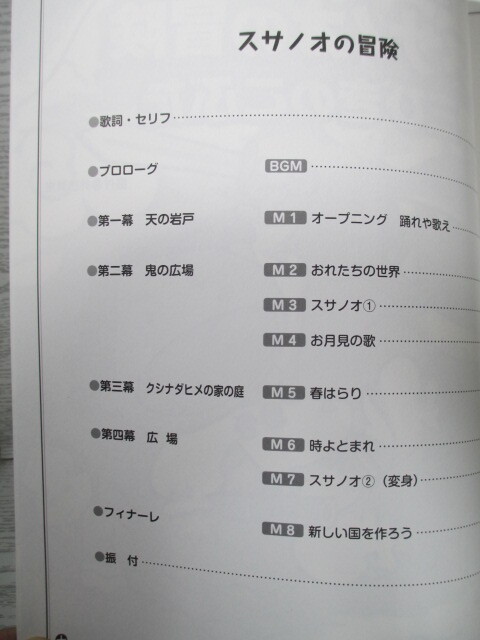 スサノオの冒険
●歌詞・セリフ
●プロローグ BGM
●第一幕 天の岩戸 M1 オープニング 踊れや歌え
●第二幕 鬼の広場 M2 おれたちの世界
M3 スサノオ①
M4 お月見の歌
●第三幕 クシナダヒメの家の庭 M5 春はらり
●第四幕 広場 M6 時よとまれ
M7 スサノオ②(変身)
●フィナーレ M8 新しい国を作ろう
●振付